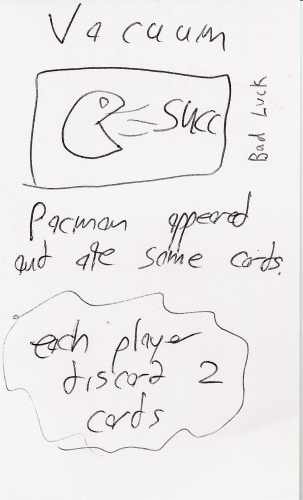 Vacuum
Succ
Bad Luck
Pacman appeared
and ate some cards.
each player
discard 2
cards